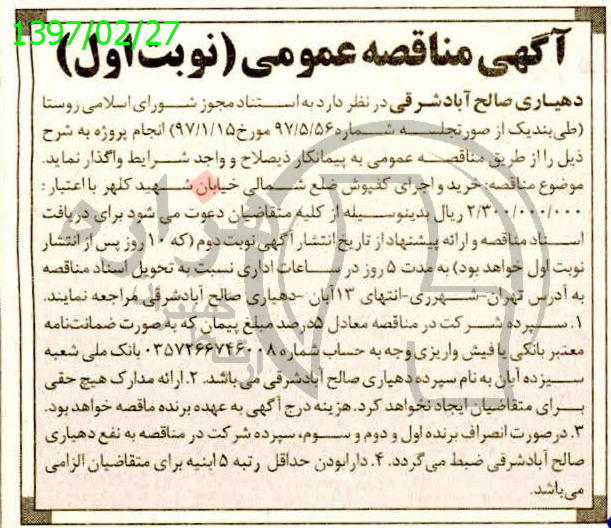 1397/02/27
آگهی مناقصه عمومی (نوبت اول)
دهیاری صالح آباد شرقی در نظر دارد به استناد مجوز شورای اسلامی روستا
(طی بند یک از صورتجلسه شماره ۹۷/۵/۵۶ مورخ ۹۷/۱/۱۵) انجام پروژه به شرح
ذیل را از طریق مناقصه عمومی به پیمانکار ذیصلاح و واجد شرایط واگذار نماید.
موضوع مناقصه: خرید و اجرای کفپوش ضلع شمالی خیابان شهید کلهر با اعتبار:
۲/۳۰۰/۰۰۰/۰۰۰ ریال بدینوسیله از کلیه متقاضیان دعوت می شود برای دریافت
اسناد مناقصه و ارائه پیشنهاد از تاریخ انتشار آگهی نوبت دوم (که ۱۰ روز پس از انتشار
نوبت اول خواهد بود) به مدت ۵ روز در ساعات اداری نسبت به تحویل اسناد مناقصه
به آدرس تهران-شهرری-انتهای ۱۳ آبان -دهیاری صالح آبادشرقی مراجعه نمایند.
۱. سپرده شرکت در مناقصه معادل ۵درصد مبلغ پیمان که به صورت ضمانتنامه
معتبر بانکی یا فیش واریزی وجه به حساب شماره بانک ملی شعبه
سیزده آبان به نام سپرده دهیاری صالح آبادشرقی می باشد. ۲. ارائه مدارک هیچ حقی
برای متقاضیان ایجاد نخواهد کرد. هزینه درج آگهی به عهده برنده ماقصه خواهد بود.
۳. درصورت انصراف برنده اول و دوم و سوم، سپرده شرکت در مناقصه به نفع دهیاری
صالح آبادشرقی ضبط می گردد. ۴. دارابودن حداقل رتبه ۵ ابنیه برای متقاضیان الزامی
می باشد.